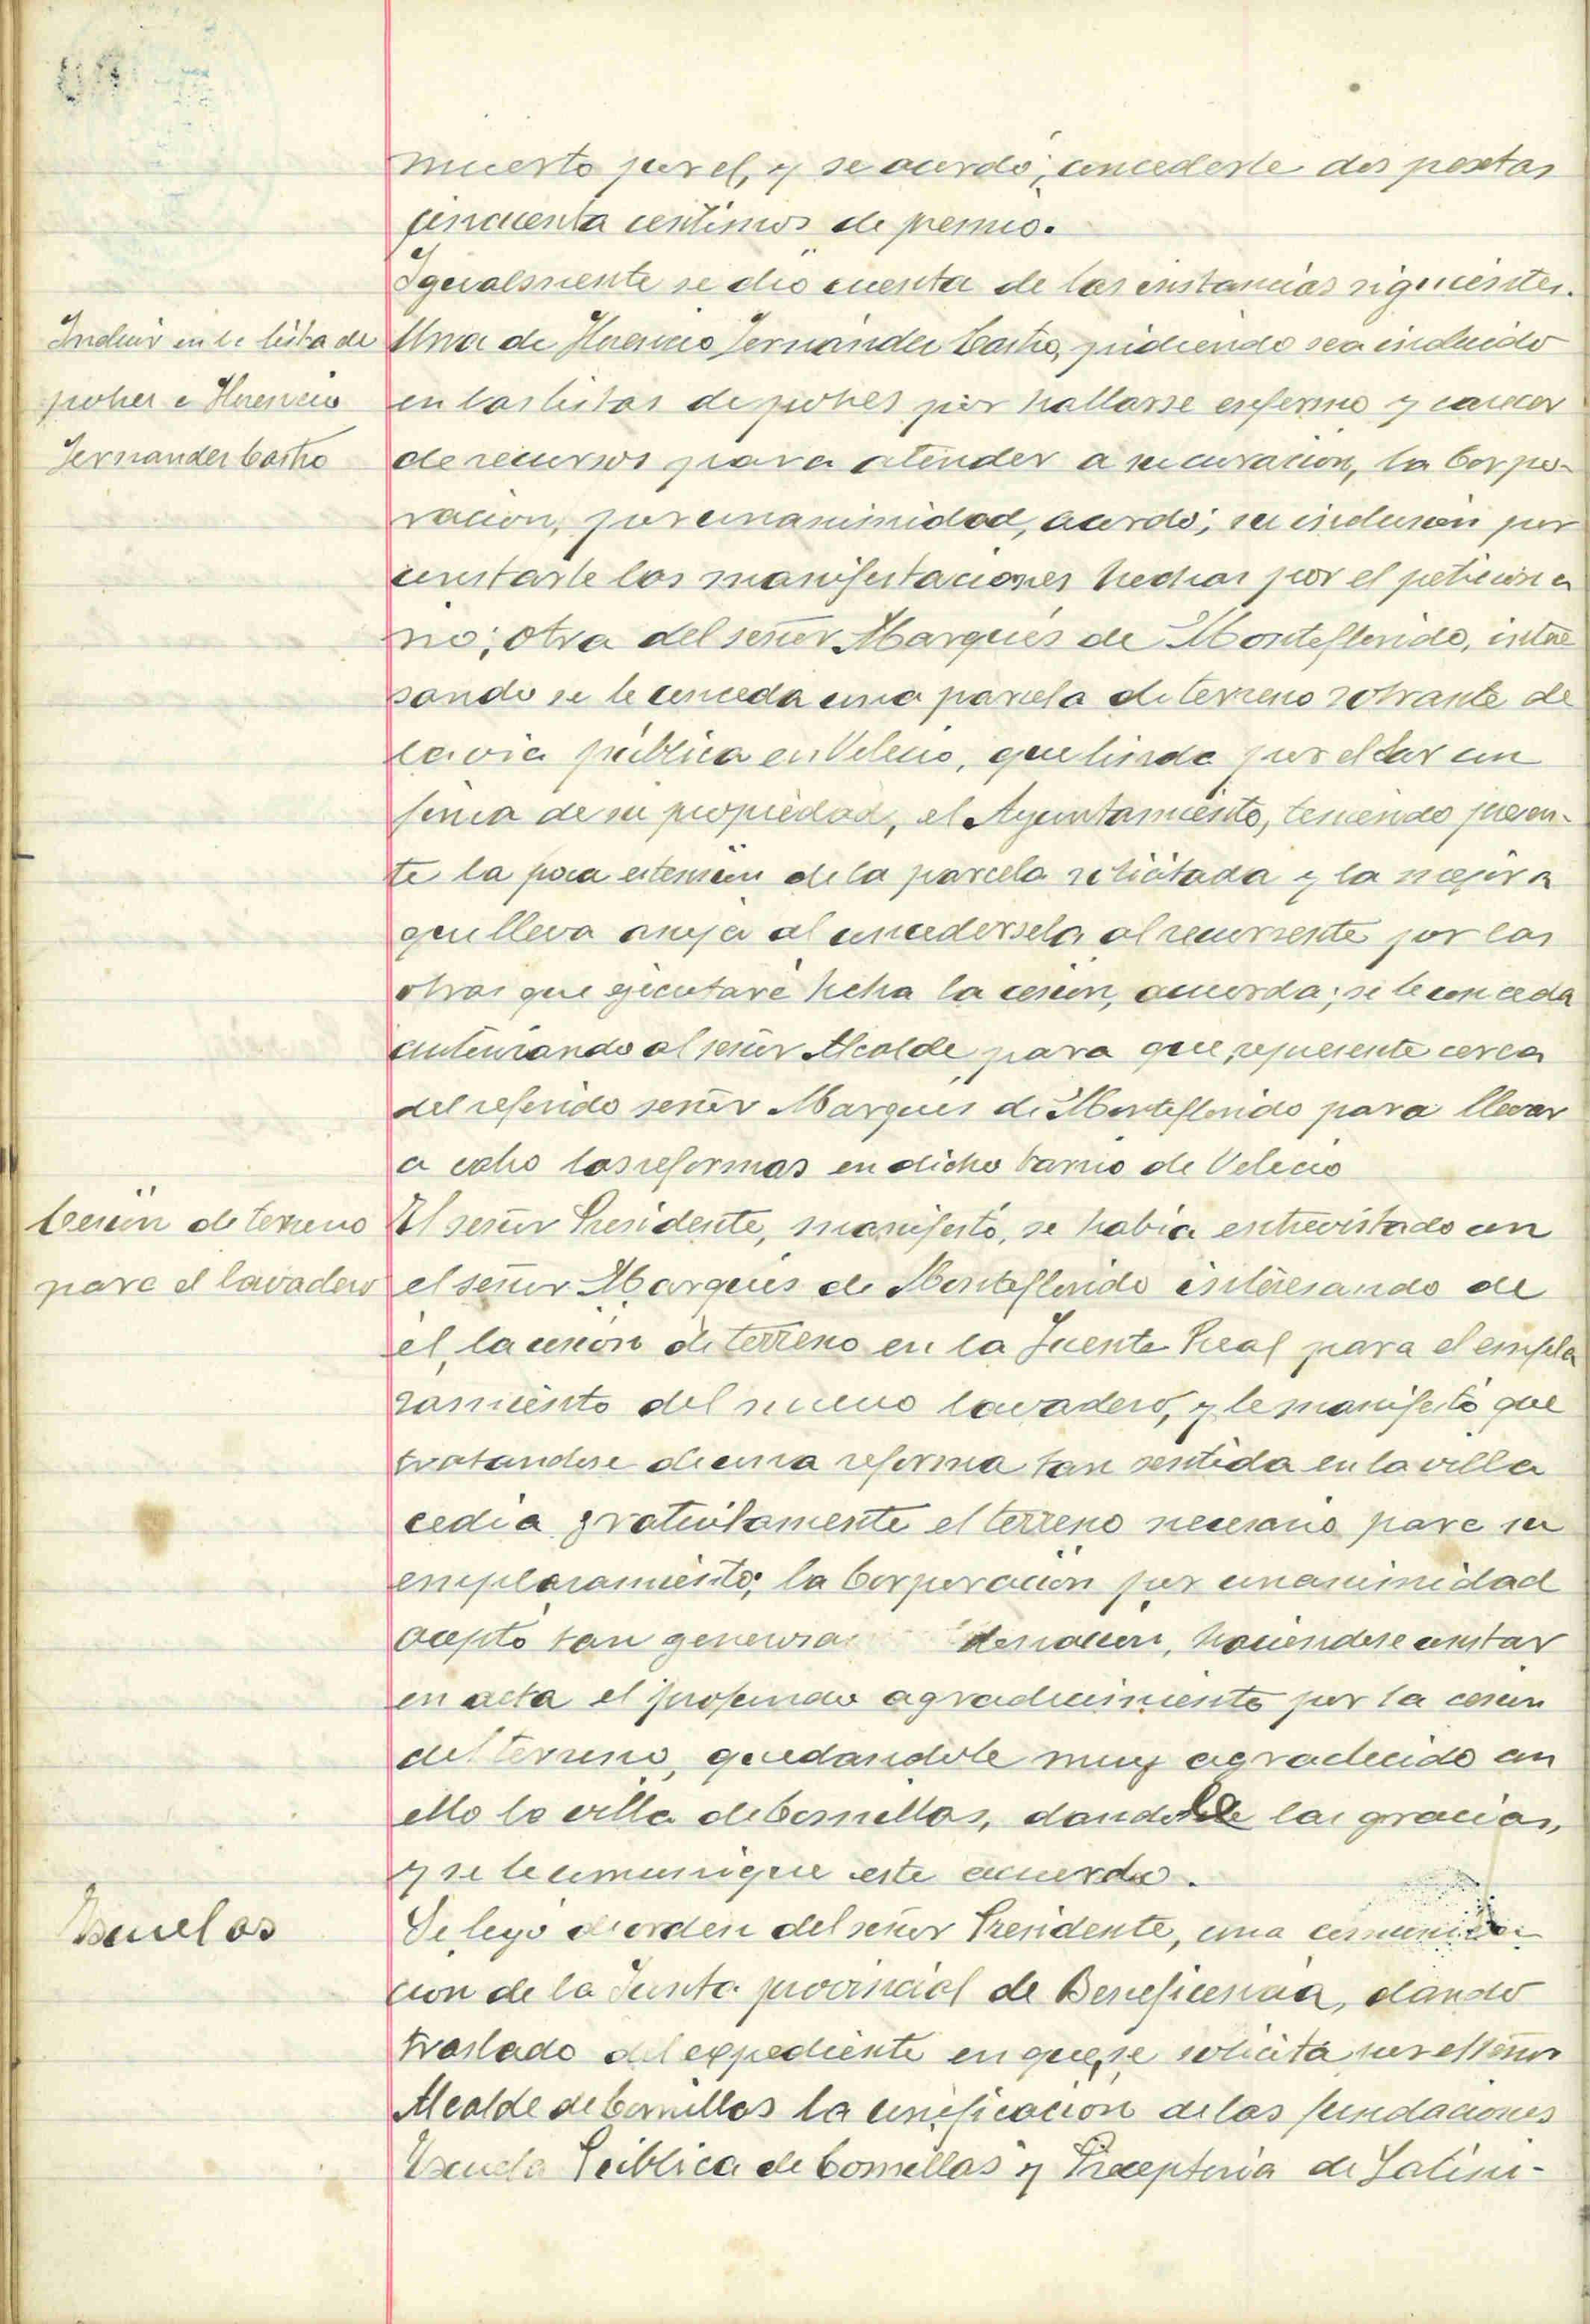 muerto por el, y se acordó; concederle dos pesetas
cincuenta centimos de premio.
Igualmente se dió cuenta de las instancias siguientes.
Incluir en la lista de
pobres a Florencio
Fernandez Castro
Una de Florencio Fernández Castro, pidiendo sea incluido
en las listas de pobres por hallarse enfermo y carecer
de recursos para atender a su curación, la Corpo-
ración, por unanimidad, acordó; su inclusión por
constarle las manifestaciones hechas por el peticiona
rio; otra del señor Marqués de Monteflorido, intere
sando se le conceda una parcela de terreno sobrante de
la via pública en Velecio, que linda por el Sur con
finca de su propiedad, el Ayuntamiento, teniendo presen-
te la poca estensión de la parcela solicitada y la mejora
que lleva aneja al concedersela al recurrente por las
obras que ejecutará hecha la cesión, acuerda; se le conceda
autorizando al señor Alcalde para que, represente cerca
del referido señor Marqués de Monteflorido para llevar
a cabo las reformas en dicho barrio de Velecio
Cesión de terreno
para el lavadero
El señor Presidente, manifestó, se había entrevistado con
el señor Marqués de Monteflorido interesando de
él, la cesión de terreno en la Fuente Real para el empla
zamiento del nuevo lavadero, y le manifestó que
tratandose de una reforma tan sentida en la villa
cedía gratuitamente el terreno necesario para su
emplazamiento; la Corporación por unanimidad
aceptó tan generosa donación, haciendose constar
en acta el profundo agradecimiento por la cesión
del terreno, quedandole muy agradecido con
ello la villa de Comillas, dandole las gracias,
y se le comunique este acuerdo.
Escuelas
Se leyó de orden del señor Presidente, una comunica
ción de la Junta provincial de Beneficencia, dando
traslado del expediente en que, se solicita por el señor
Alcalde de Comillas la unificación de las fundaciones
Escuela Pública de Comillas y Preceptoria de Latini-